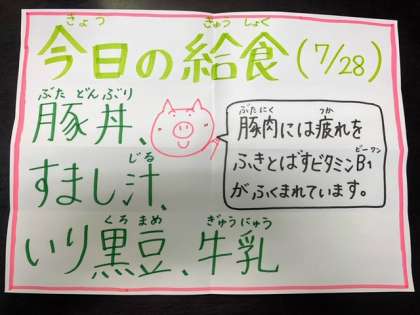 きょう きゅう しょく
今日の給食(7/28)
ぶた どんぶり
豚丼、
じる
すまし汁、
くろ まめ ぎゅうにゅう
いり黒豆、牛乳
ぶたにく つか
豚肉には疲れを
ビーワン
ふきとばすビタミンB1
がふくまれています。